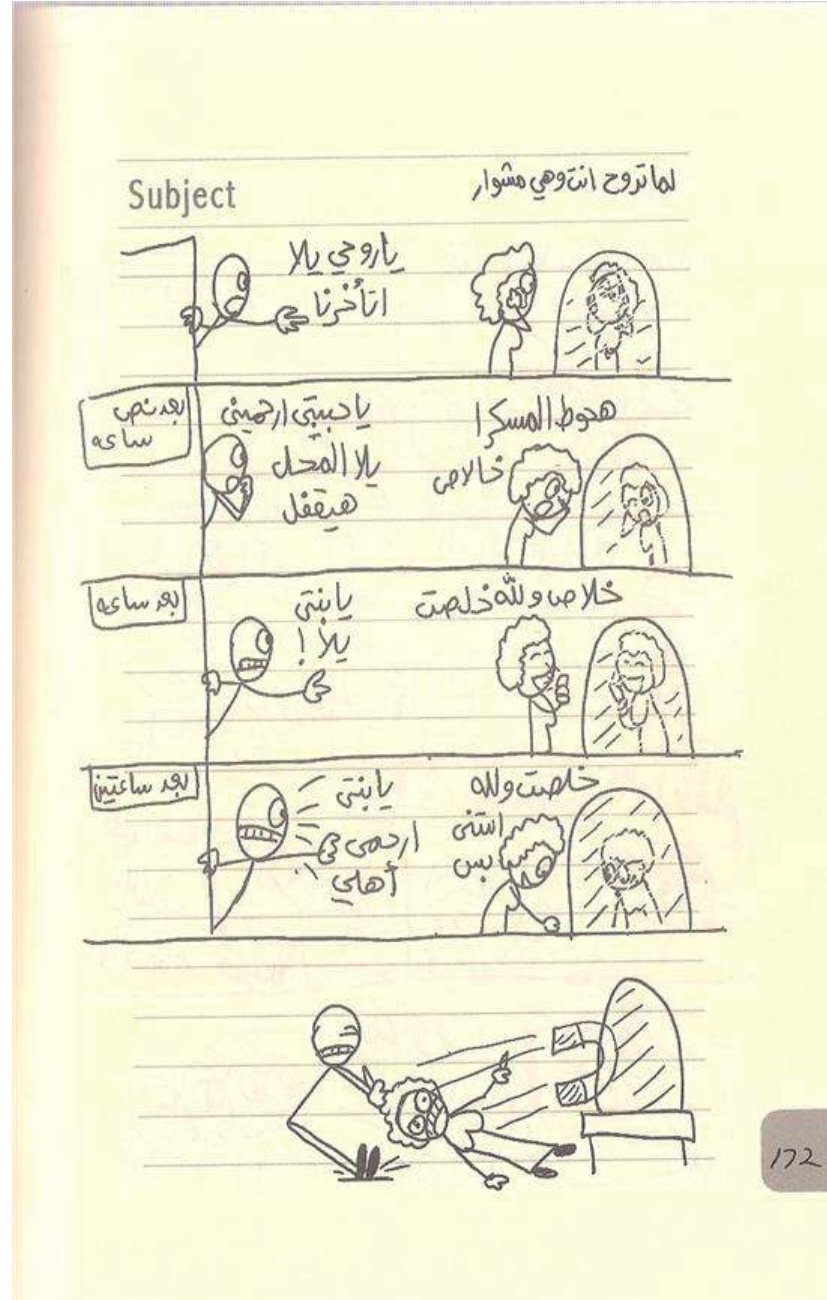 Subject
لما تروح انت وهي مشوار
ياروحي يلا
اتأخرنا
بعد نص
ساعه
ياحبيبتي ارحميني
يلا المحل
هيقفل
هحوط المسكرا
خالاص
بعد ساعه
يابنتي
يلا !
خلاص ولله خلصت
بعد ساعتين
يابنتي
ارحمي
أهلي
خلصت ولله
استنى
بس
172